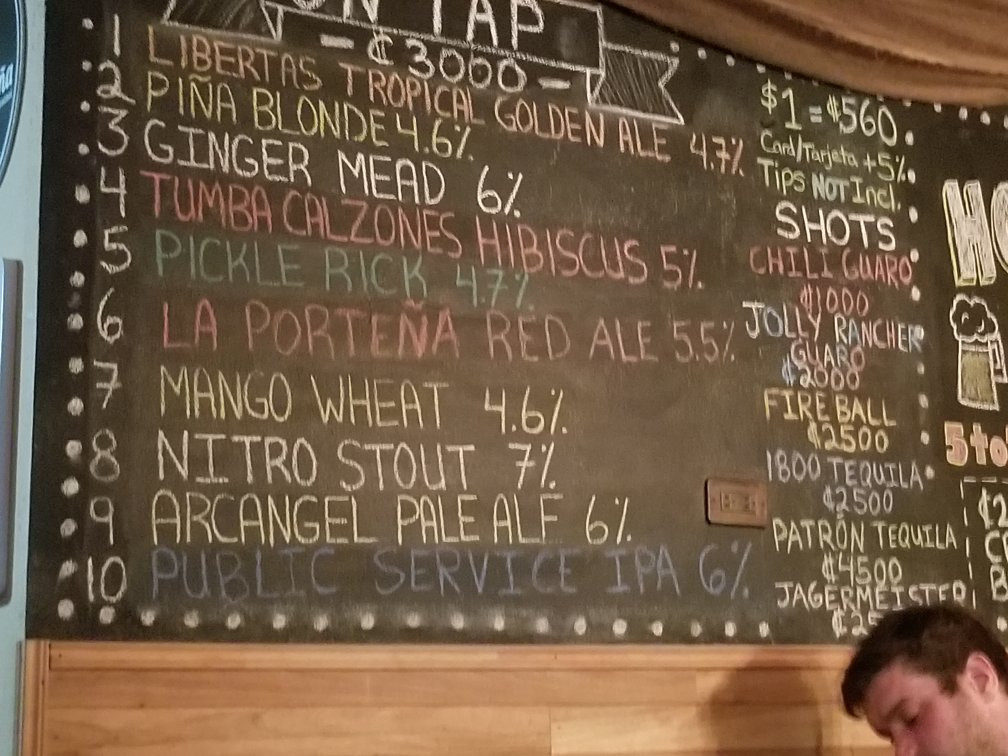 ON TAP
- ₡3000 -
1 LIBERTAS TROPICAL GOLDEN ALE 4.7%
2 PIÑA BLONDE 4.6%
3 GINGER MEAD 6%
4 TUMBA CALZONES HIBISCUS 5%
5 PICKLE RICK 4.7%
6 LA PORTEÑA RED ALE 5.5%
7 MANGO WHEAT 4.6%
8 NITRO STOUT 7%
9 ARCANGEL PALE ALE 6%
10 PUBLIC SERVICE IPA 6%
$1 = ₡560
Card/Tarjeta +5%
Tips NOT Incl.
SHOTS
CHILI GUARO
₡1000
JOLLY RANCHER
GUARO
₡2000
FIREBALL
₡2500
1800 TEQUILA
₡2500
PATRÓN TEQUILA
₡4500
JAGERMEISTER
5 to